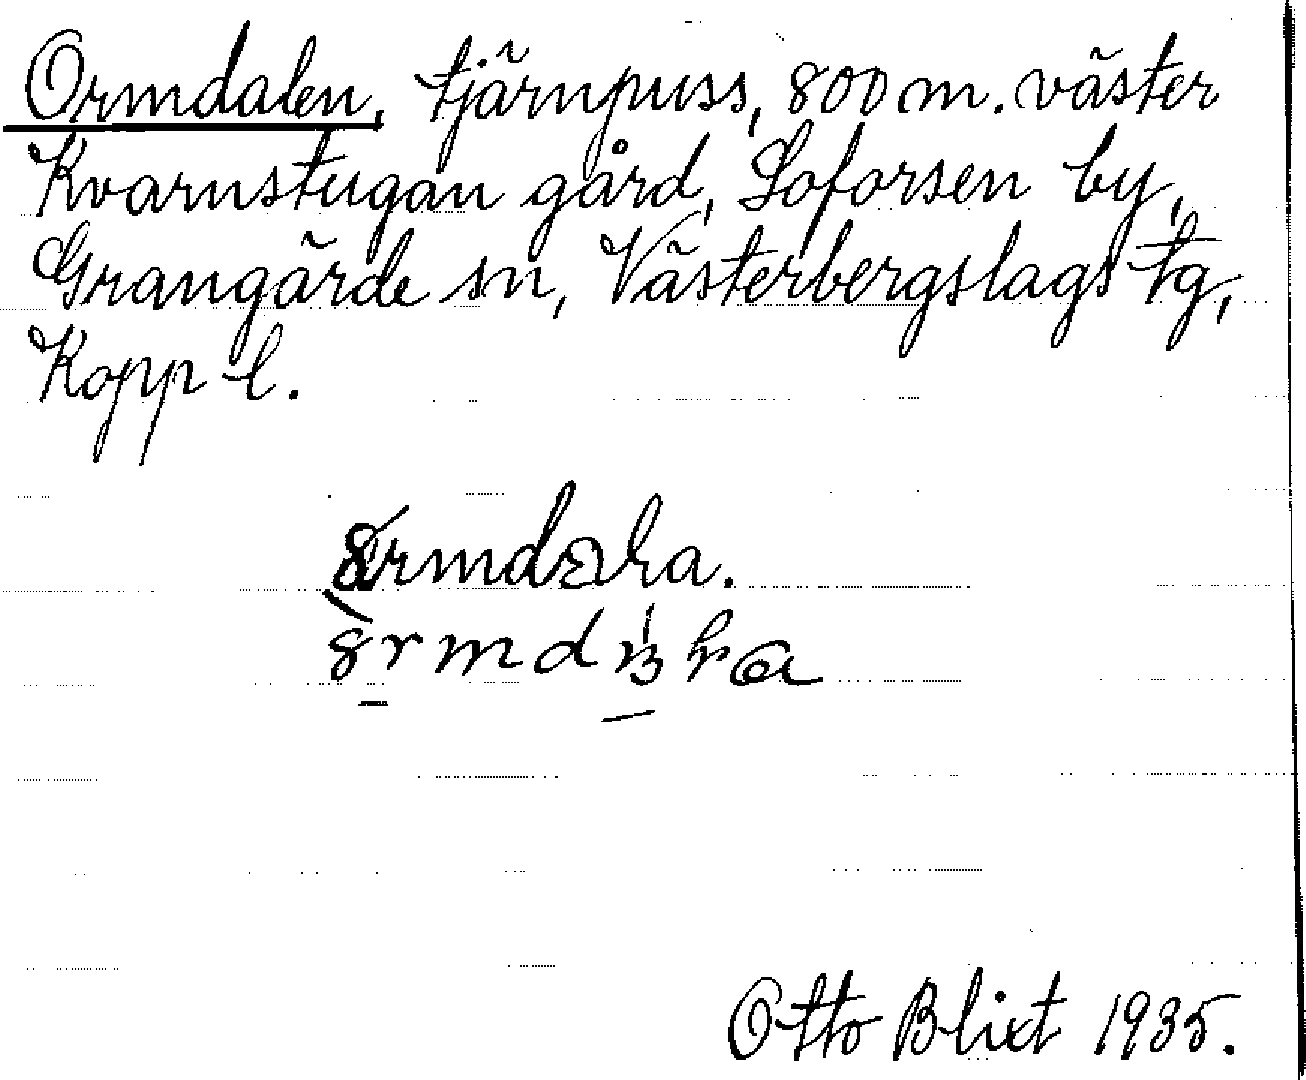 Ormdalen, tjärnpuss, 800 m. väster
Kvarnstugan gård, Loforsen by,
Grangärde sn, Västerbergslags tg,
Kopp l.
Otto Blixt 1935.